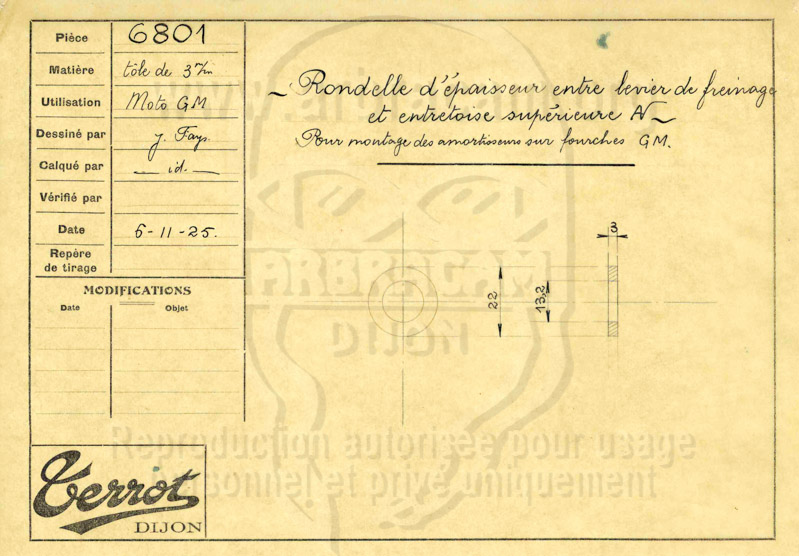 Pièce 6801
Matière tôle de 3 m/m
Utilisation Moto GM
Dessiné par J. Fays.
Calqué par — id. —
Vérifié par
Date 6-11-25.
Repère
de tirage
MODIFICATIONS
Date Objet
~ Rondelle d'épaisseur entre levier de freinage
et entretoise supérieure AV ~
Pour montage des amortisseurs sur fourches GM.
3
22
13,2
MARBRAGAM
DIJON
Reproduction autorisée pour usage
personnel et privé uniquement
Terrot
DIJON